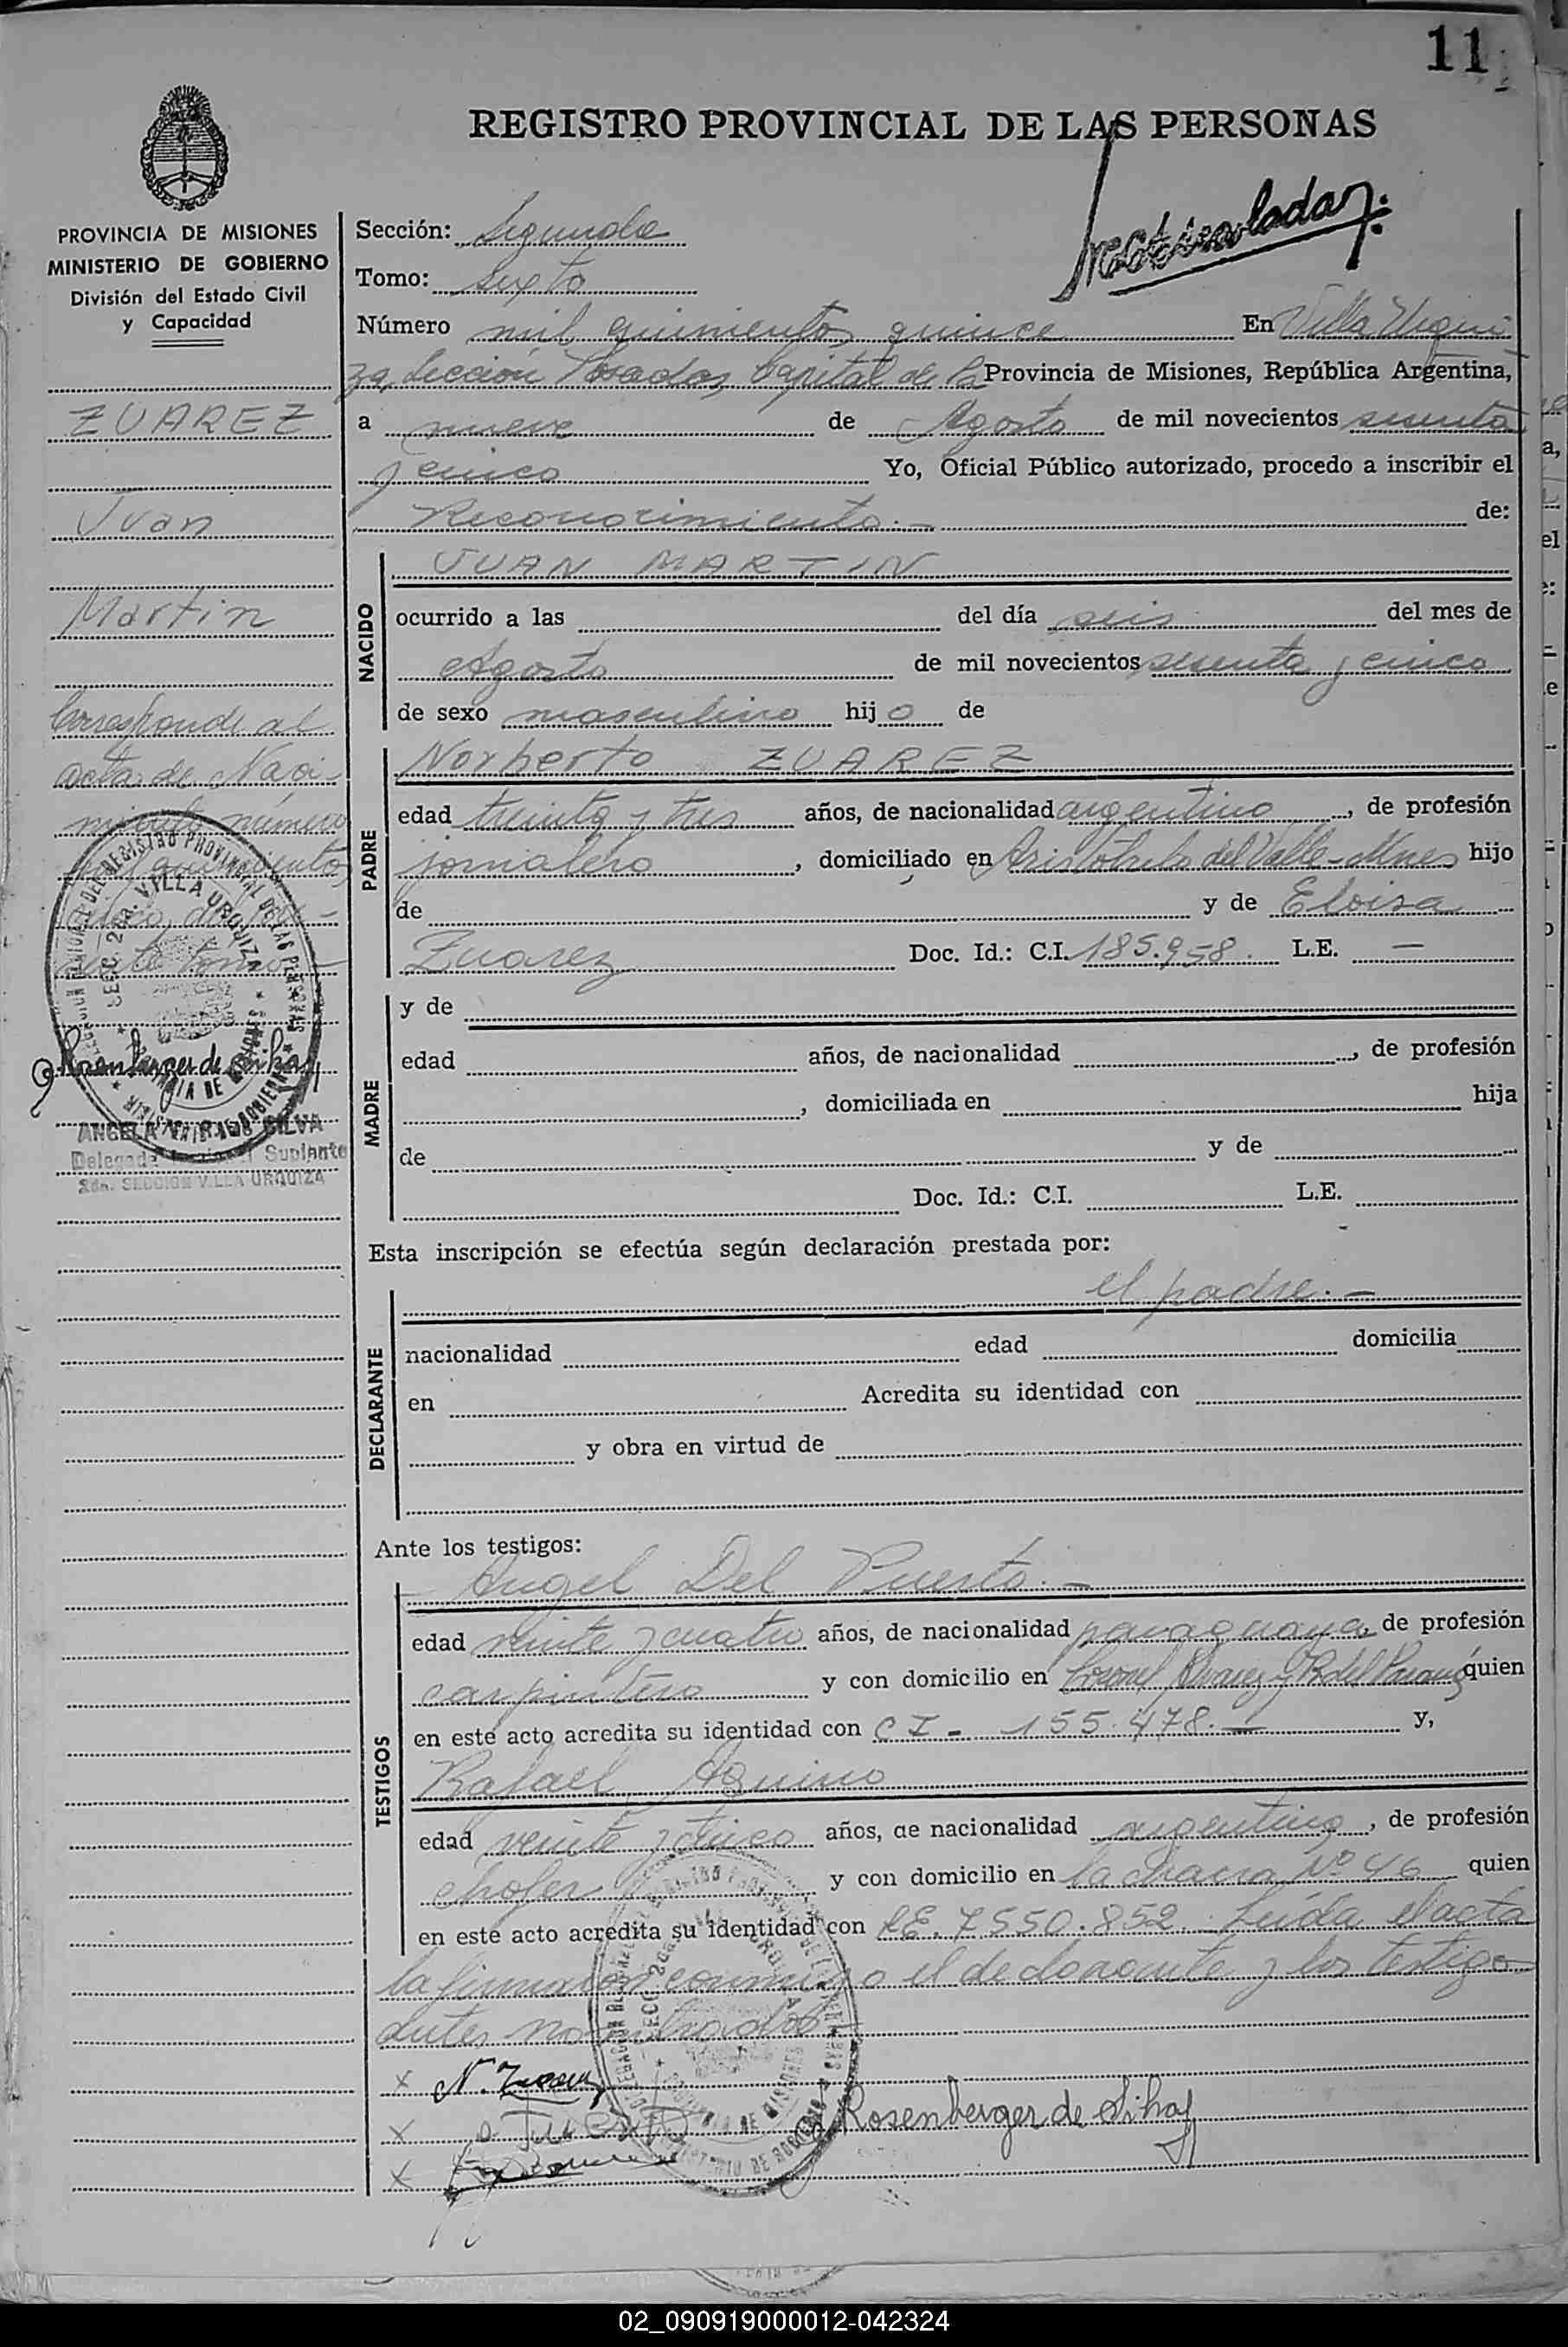 11
REGISTRO PROVINCIAL DE LAS PERSONAS
PROVINCIA DE MISIONES
MINISTERIO DE GOBIERNO
División del Estado Civil
y Capacidad
ZUAREZ
Juan
Martin
Corresponde al
acta de Naci-
miento número
mil quinientos
Sección: Segunda
Tomo: Sexto
Número mil quinientos quince En Villa Urqui
za, Sección Posadas, Capital de la Provincia de Misiones, República Argentina,
a nueve de Agosto de mil novecientos sesenta
y cinco Yo, Oficial Público autorizado, procedo a inscribir el
Reconocimiento.- de:
NACIDO
JUAN MARTIN
ocurrido a las del día seis del mes de
Agosto de mil novecientos sesenta y cinco
de sexo masculino hijo de
PADRE
Norberto ZUAREZ
edad treinta y tres años, de nacionalidad argentino, de profesión
jornalero, domiciliado en Aristóbulo del Valle-Mnes hijo
de y de Eloisa
Zuarez Doc. Id.: C.I. 185.958. L.E. —
MADRE
y de
edad años, de nacionalidad , de profesión
, domiciliada en hija
de y de
Doc. Id.: C.I. L.E.
Esta inscripción se efectúa según declaración prestada por:
DECLARANTE
el padre.-
nacionalidad edad domicilia
en Acredita su identidad con
y obra en virtud de
Ante los testigos:
TESTIGOS
Angel Del Puerto.-
edad veinte y cuatro años, de nacionalidad paraguaya, de profesión
carpintero y con domicilio en Coronel Alvarez y P. del Paraná quien
en este acto acredita su identidad con CI- 155.478.- y,
Rafael Aquino
edad veinte y cinco años, de nacionalidad argentino, de profesión
chofer y con domicilio en la chacra Nº 46 quien
en este acto acredita su identidad con LE. 7550.852. Leída el acta
la firmaron conmigo el declarante y los testigo
antes nombrados
x N. Zuarez
x
x
Rosenberger de Silva
Rosenberger de Silva
ANGELA R. DE SILVA
Delegada Suplente
2da. SECCION VILLA URQUIZA
DELEGACION DEL REGISTRO PROVINCIAL DE LAS PERSONAS
SECC. 2da. VILLA URQUIZA
PROVINCIA DE MISIONES
MINISTERIO DE GOBIERNO
02_090919000012-042324